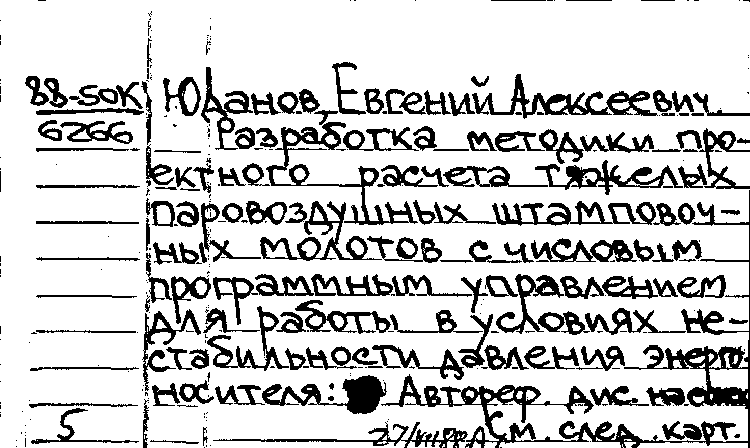 88-50К Юданов, Евгений Алексеевич.
6266 Разработка методики про-
ектного расчета тяжелых
паровоздушных штамповоч-
ных молотов с числовым
программным управлением
для работы в условиях не-
стабильности давления энерго-
носителя: Автореф. дис.
5 См. след. карт.